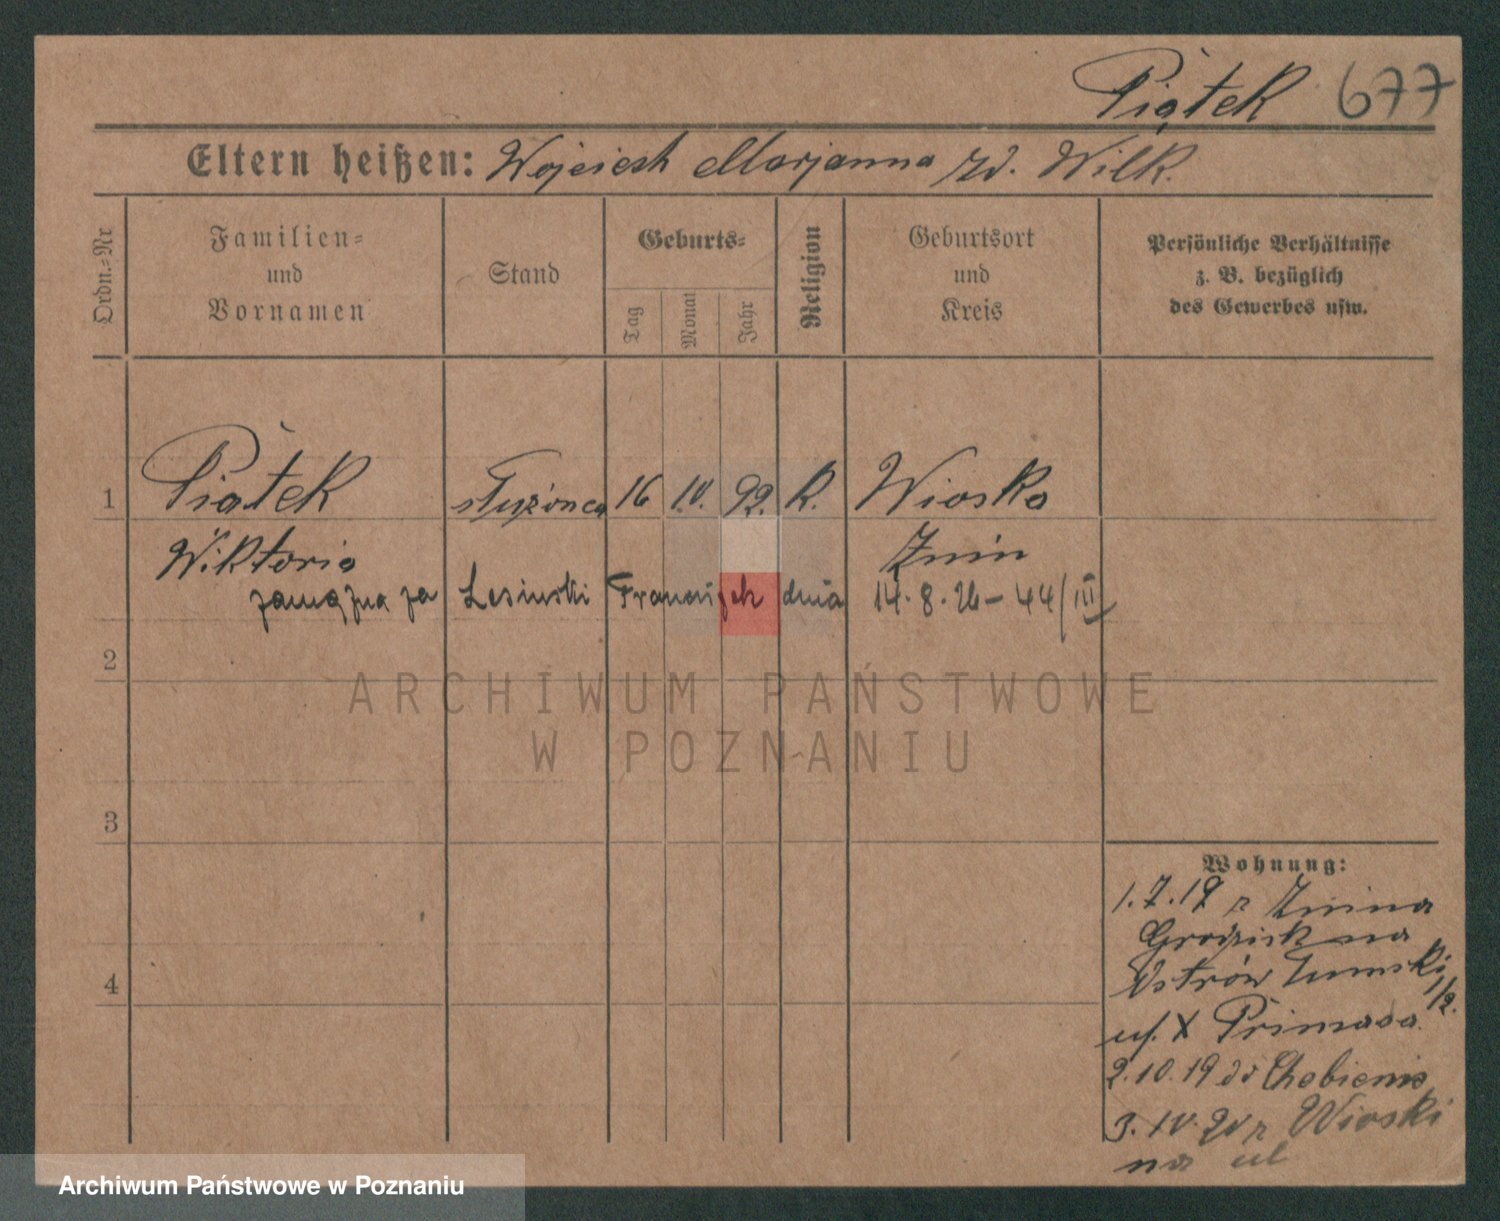 Piątek 677
Eltern heißen: Wojciech Marjanna zd. Wilk.
Ordn.-Nr
Familien-
und
Vornamen
Stand
Geburts-
Tag
Monat
Jahr
Religion
Geburtsort
und
Kreis
Persönliche Verhältnisse
z. B. bezüglich
des Gewerbes usw.
1 Piątek służąca 16 IV. 92. K. Wioska
Wiktoria Żnin
zamężna za Lesiński Franciszek dnia 14.8.26 - 44/III
2
ARCHIWUM PAŃSTWOWE
W POZNANIU
3
4
Wohnung:
1.7.19 z Żnina
Grodzisk na
Ostrów Tumski
1/2.
ul. X Primasa
2.10.19 do Chobienic
3. IV. 20 z Wioski
na ul
Archiwum Państwowe w Poznaniu